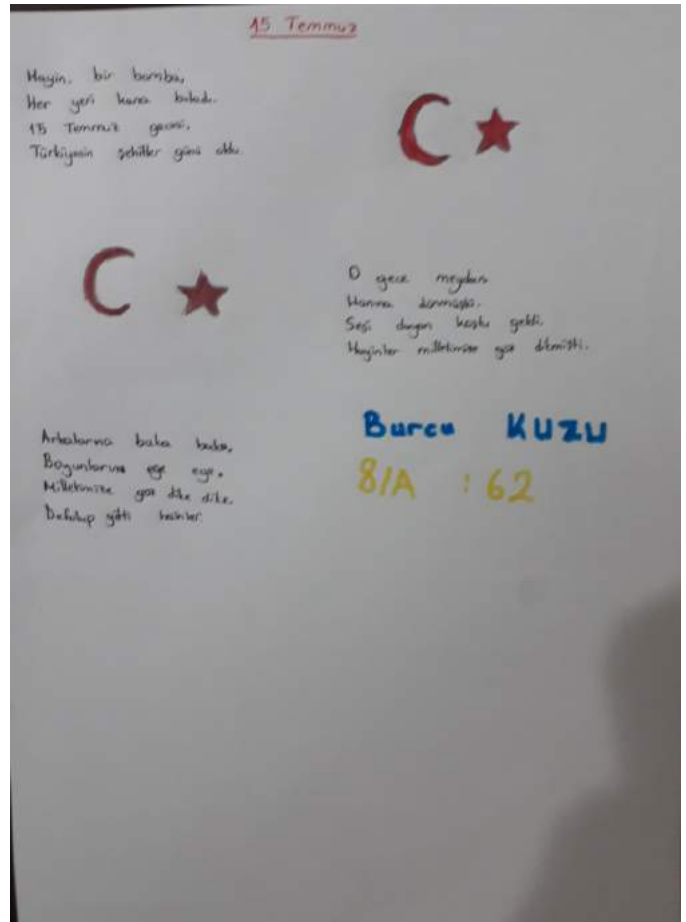 15 Temmuz
Hayin, bir bomba,
Her yeri kana buladı.
15 Temmuz gecesi,
Türkiyenin şehitler günü oldu.
O gece meydan
Harına dönmüştü.
Sesi duyan koştu geldi.
Hayinler milletimize göz dikmişti.
Arkalarına baka baka,
Boyunlarını eğe eğe,
Milletimize göz dike dike,
Defolup gitti hainler.
Burcu KUZU
8/A : 62